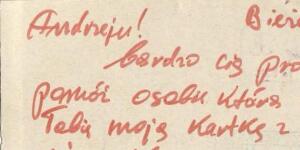 Andrzeju! Bier
bardzo cię pro
pomóż osobie która
Tobie moją kartkę z